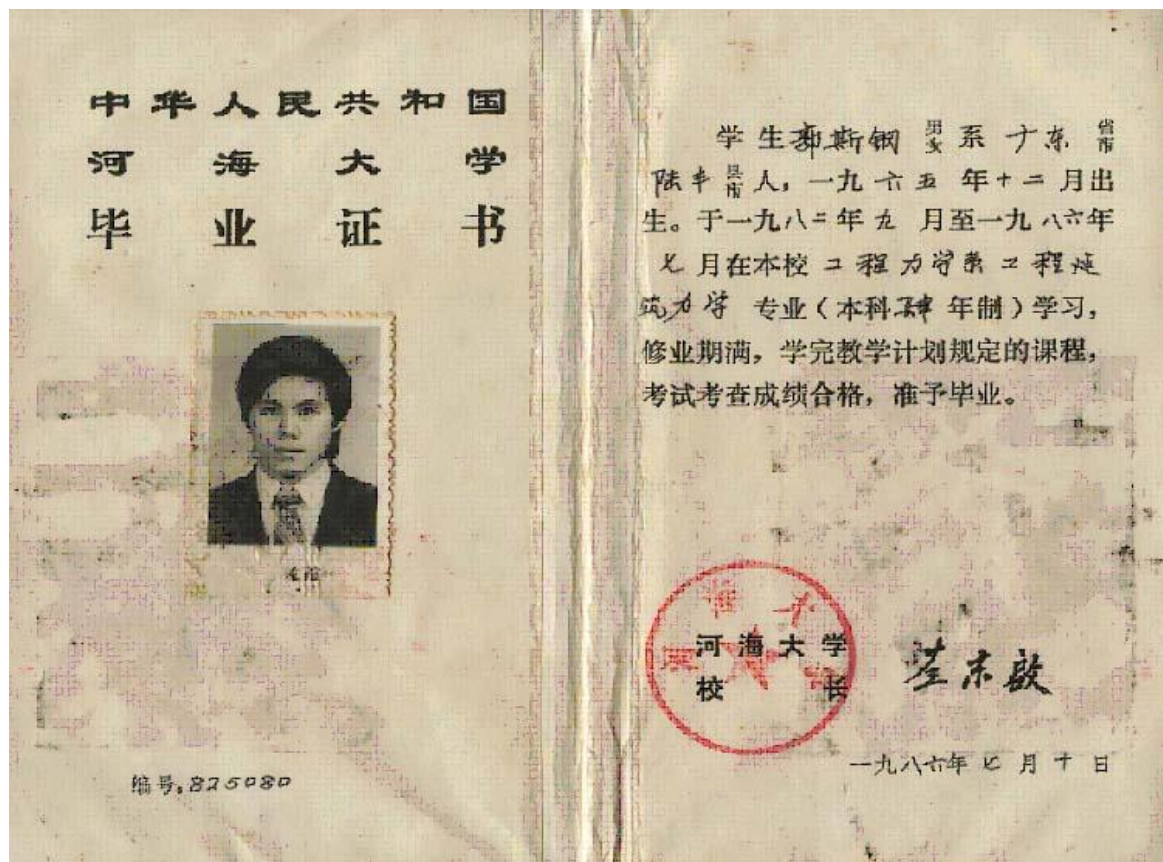 中华人民共和国
河海大学
毕业证书
编号.825080
学生郭斯钢 男女 系 广东 省市
陆丰 县市 人，一九六五年十二月出
生。于一九八二年九月至一九八六年
七月在本校工程力学系工程建
筑力学 专业（本科肆年制）学习，
修业期满，学完教学计划规定的课程，
考试考查成绩合格，准予毕业。
河海大学
河海大学
校长
一九八六年七月十日